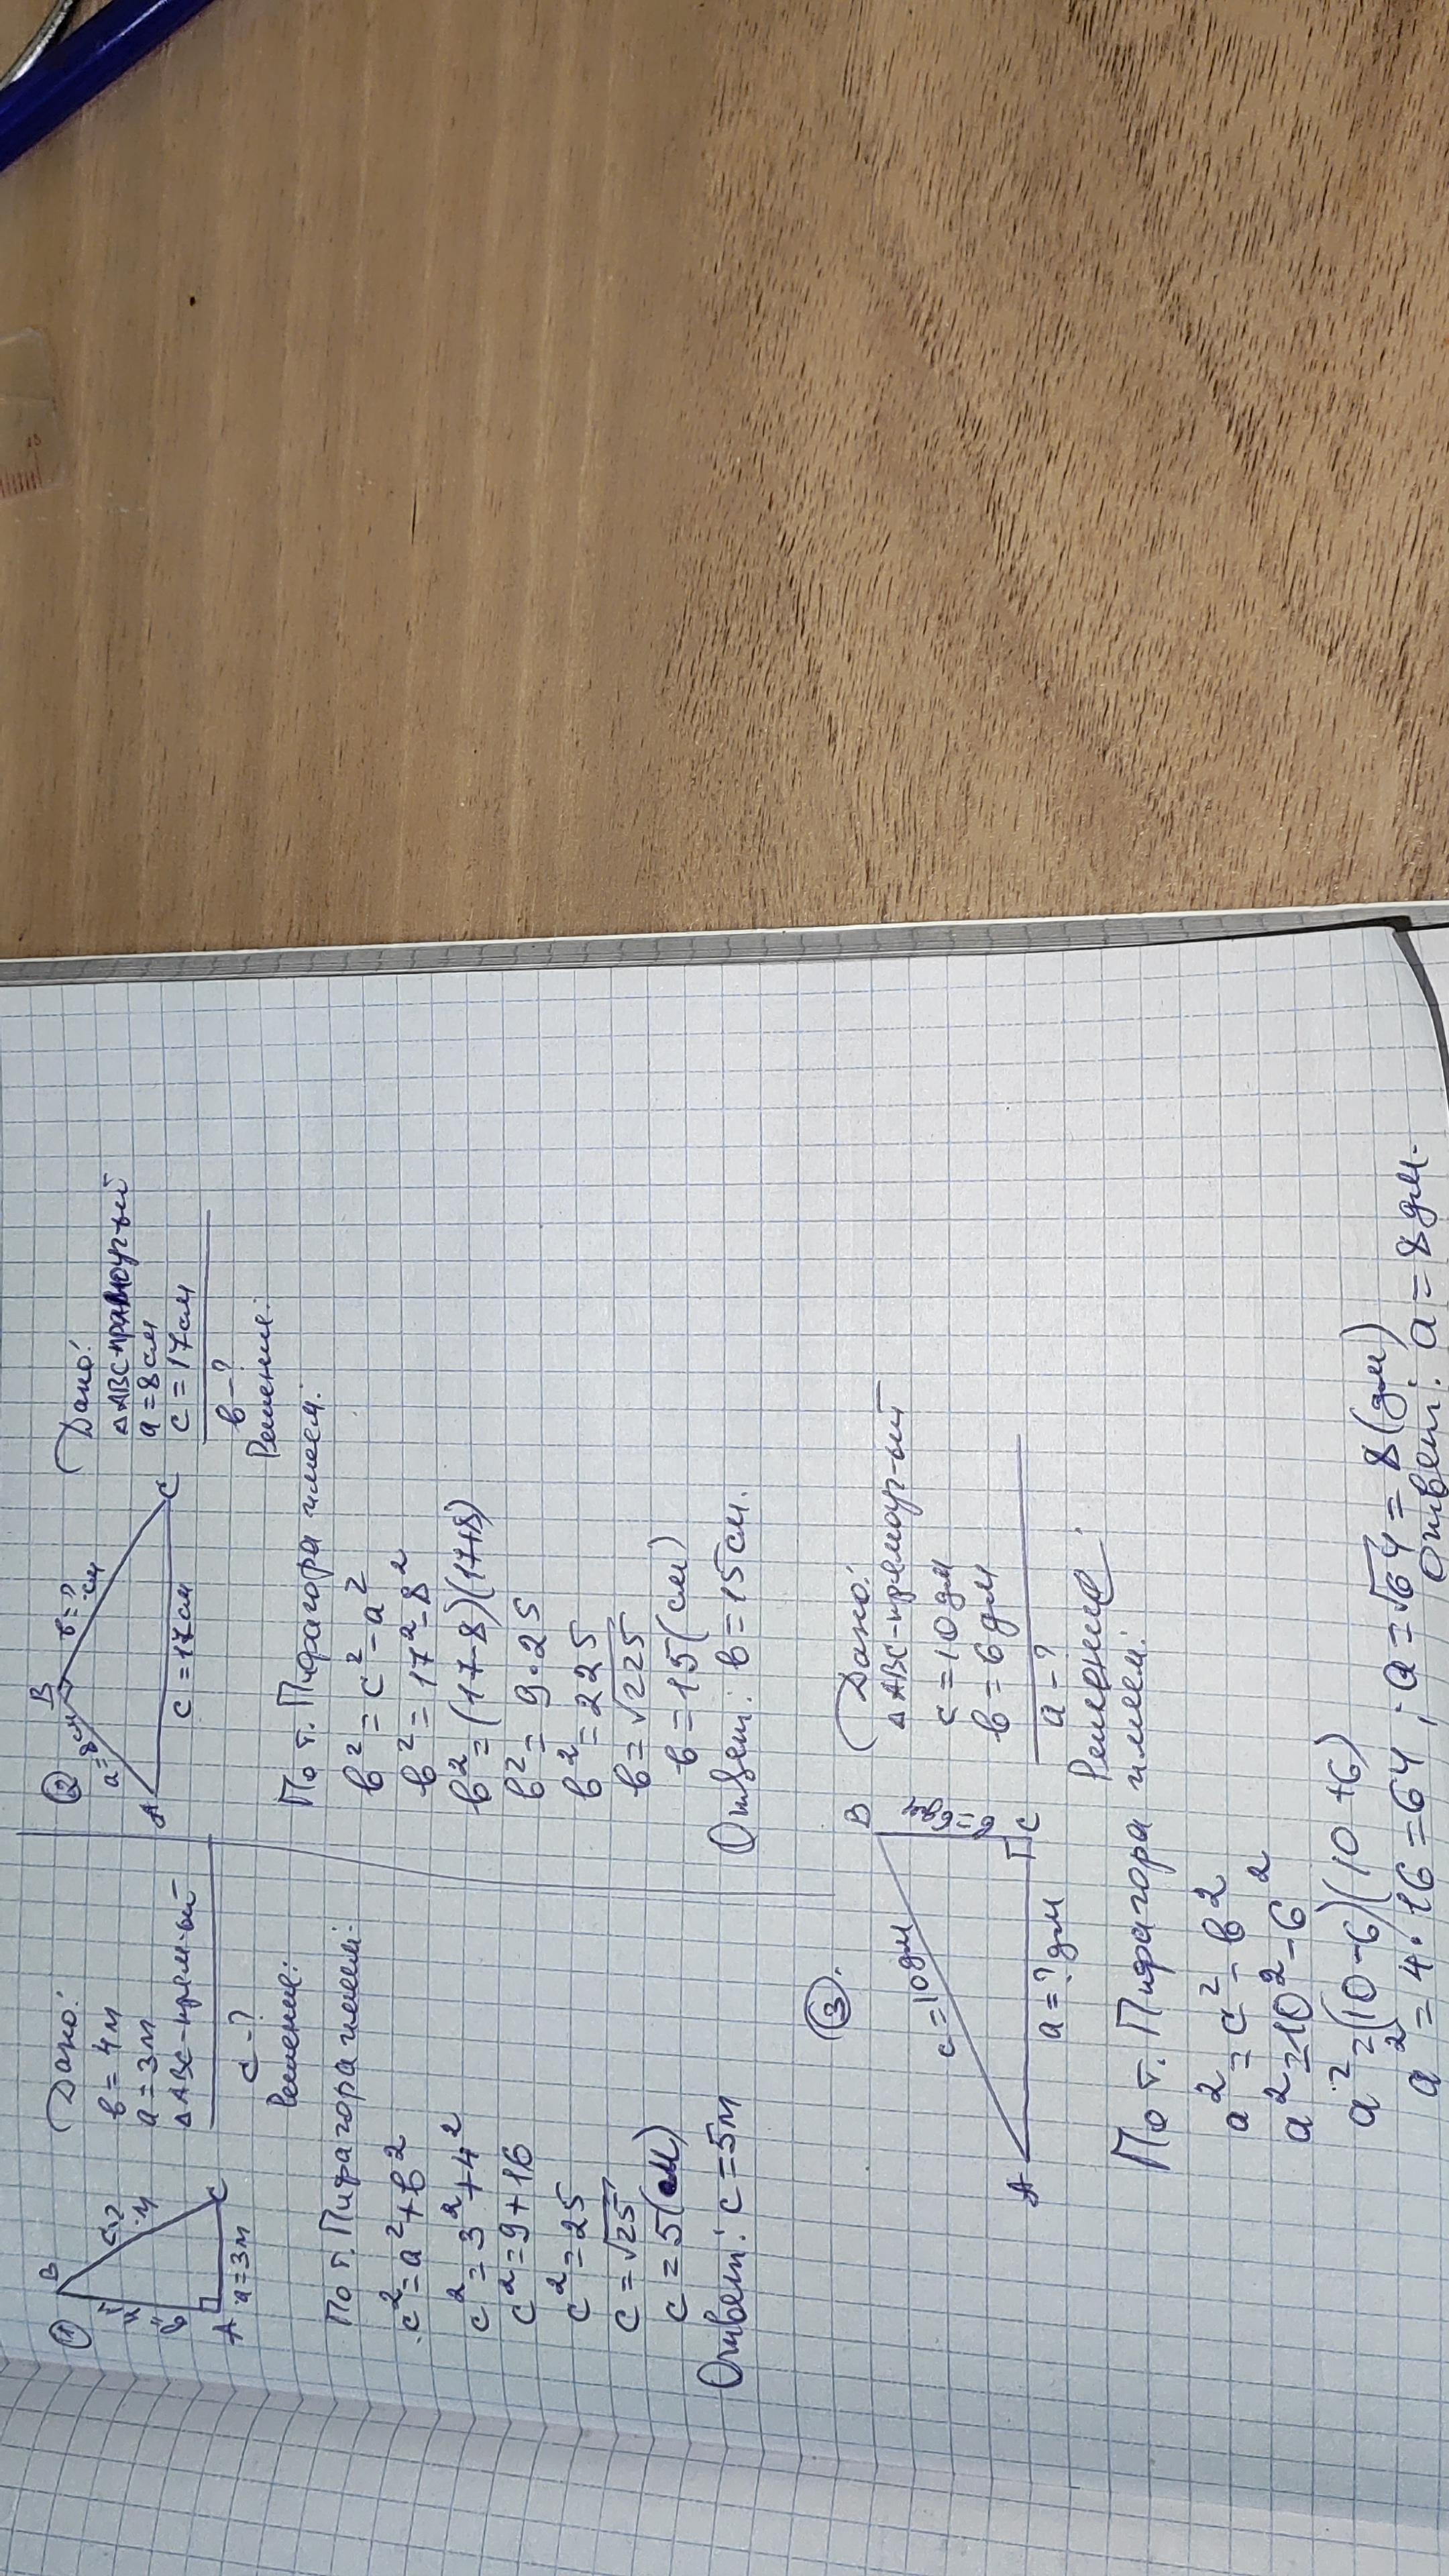 ①
B
c=?
м
4м
в=
A
a=3м
C
Дано:
в=4м
a=3м
△ABC-прям-ый
c-?
Решение:
По т. Пифагора имеем:
c²=a²+в²
c²=3²+4²
c²=9+16
c²=25
c=√25
c=5(м)
Ответ: c=5м
②
B
a=8см
в=?
см
A
C
c=17см
Дано:
△ABC-прямоуг-ый
a=8см
c=17см
в-?
Решение:
По т. Пифагора имеем:
в²=c²-a²
в²=17²-8²
в²=(17-8)(17+8)
в²=9·25
в²=225
в=√225
в=15(см)
Ответ: в=15см.
③.
B
c=10дм
в=6дм
A
C
a=?дм
Дано:
△ABC-прямоуг-ый
c=10дм
в=6дм
a-?
Решение
По т. Пифагора имеем:
a²=c²-в²
a²=10²-6²
a²=(10-6)(10+6)
a²=4·16=64; a=√64=8(дм)
Ответ: a=8дм.